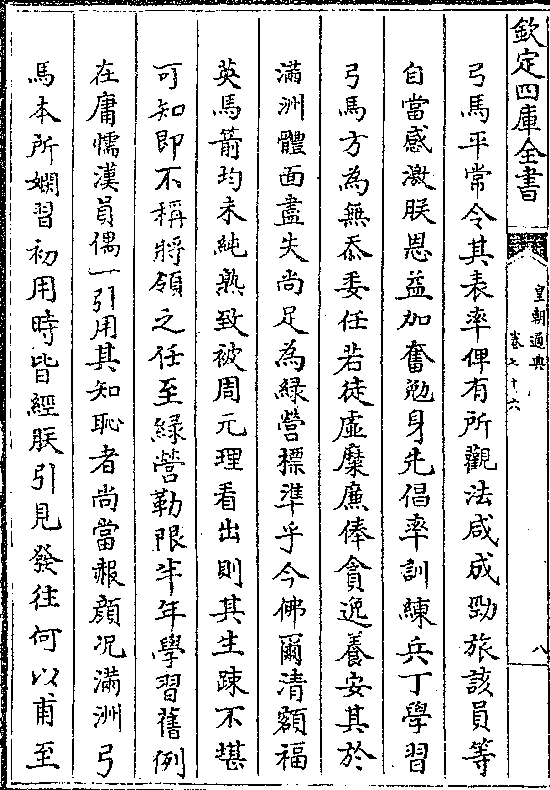 欽定四庫全書
皇朝通典
卷七十六
八
弓馬平常令其表率俾有所觀法咸成勁旅該員等
自當感激朕恩益加奮勉身先倡率訓練兵丁學習
弓馬方為無忝委任若徒虛糜廉俸貪逸養安其於
滿洲體面盡失尚足為綠營標準乎今佛爾清額福
英馬箭均未純熟致被周元理看出則其生疎不堪
可知即不稱將領之任至綠營勒限半年學習舊例
在庸懦漢員偶一引用其知恥者尚當赧顏況滿洲弓
馬本所嫻習初用時皆經朕引見發往何以甫至